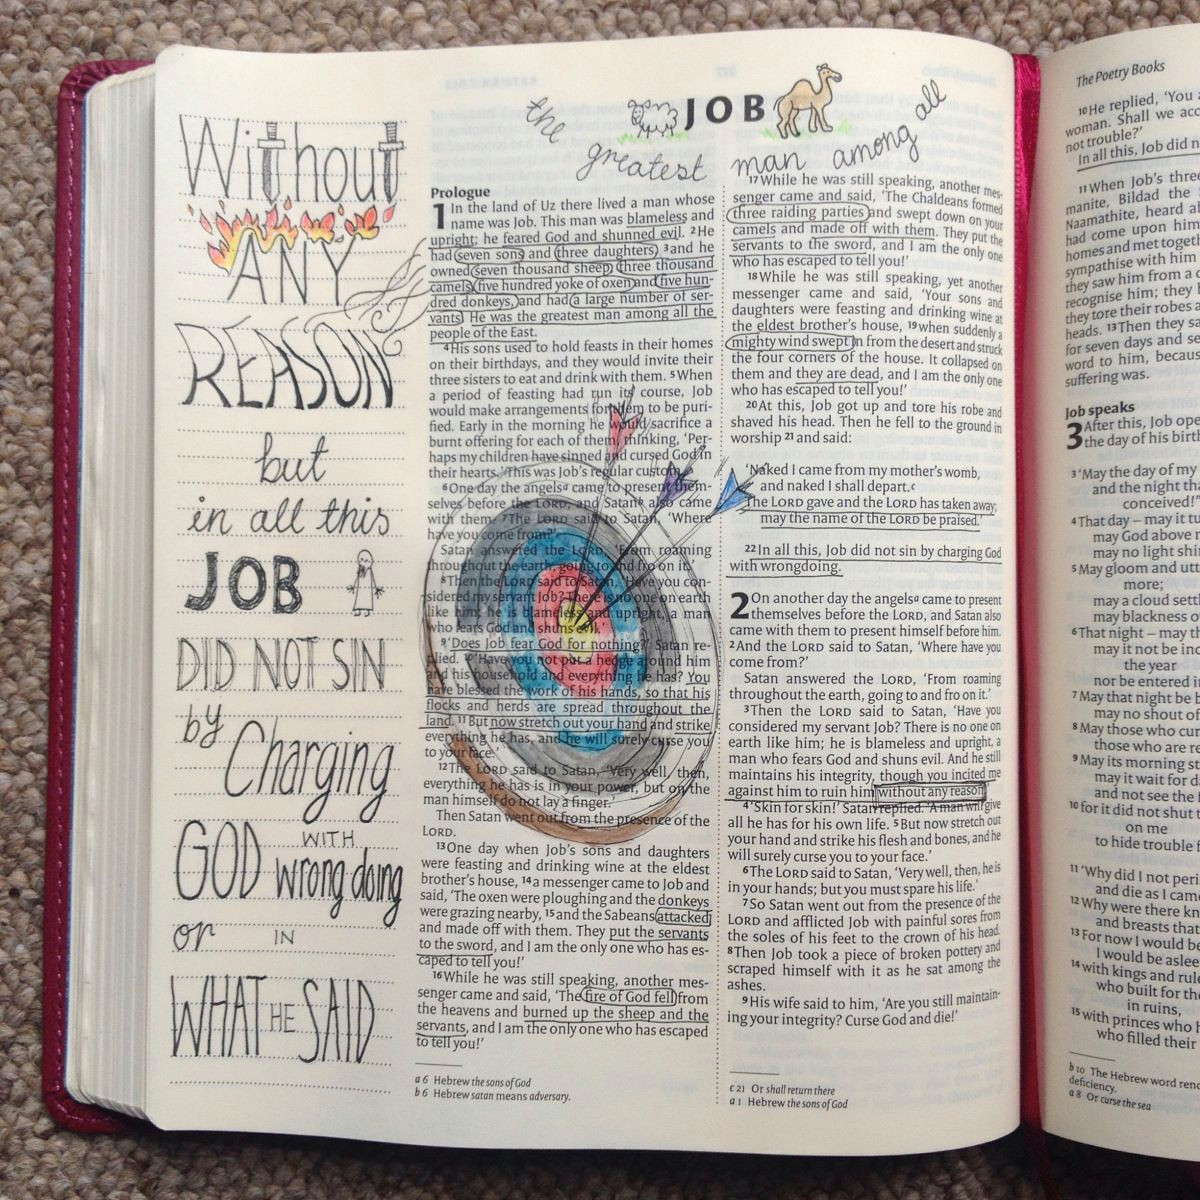 Without
ANY
REASON
but
in all this
JOB
DID NOT SIN
by
Charging
GOD WITH
wrongdoing
or IN
WHAT HE SAID
the JOB all
greatest man among
Prologue
1 In the land of Uz there lived a man whose
name was Job. This man was blameless and
upright; he feared God and shunned evil. 2He
had seven sons and three daughters, 3and he
owned seven thousand sheep, three thousand
camels, five hundred yoke of oxen and five hun-
dred donkeys, and had a large number of ser-
vants. He was the greatest man among all the
people of the East.
4His sons used to hold feasts in their homes
on their birthdays, and they would invite their
three sisters to eat and drink with them. 5When
a period of feasting had run its course, Job
would make arrangements for them to be puri-
fied. Early in the morning he would sacrifice a
burnt offering for each of them, thinking, ‘Per-
haps my children have sinned and cursed God in
their hearts.’ This was Job’s regular custom.
6One day the angelsa came to present them-
selves before the LORD, and Satanb also came
with them. 7The LORD said to Satan, ‘Where
have you come from?’
Satan answered the LORD, ‘From roaming
throughout the earth, going to and fro on it.’
8Then the LORD said to Satan, ‘Have you con-
sidered my servant Job? There is no one on earth
like him; he is blameless and upright, a man
who fears God and shuns evil.’
9‘Does Job fear God for nothing?’ Satan re-
plied. 10‘Have you not put a hedge around him
and his household and everything he has? You
have blessed the work of his hands, so that his
flocks and herds are spread throughout the
land. 11But now stretch out your hand and strike
everything he has, and he will surely curse you
to your face.’
12The LORD said to Satan, ‘Very well, then,
everything he has is in your power, but on the
man himself do not lay a finger.’
Then Satan went out from the presence of the
LORD.
13One day when Job’s sons and daughters
were feasting and drinking wine at the eldest
brother’s house, 14a messenger came to Job and
said, ‘The oxen were ploughing and the donkeys
were grazing nearby, 15and the Sabeans attacked
and made off with them. They put the servants
to the sword, and I am the only one who has es-
caped to tell you!’
16While he was still speaking, another mes-
senger came and said, ‘The fire of God fell from
the heavens and burned up the sheep and the
servants, and I am the only one who has escaped
to tell you!’
a 6 Hebrew the sons of God
b 6 Hebrew satan means adversary.
17While he was still speaking, another mes-
senger came and said, ‘The Chaldeans formed
three raiding parties and swept down on your
camels and made off with them. They put the
servants to the sword, and I am the only one
who has escaped to tell you!’
18While he was still speaking, yet another
messenger came and said, ‘Your sons and
daughters were feasting and drinking wine at
the eldest brother’s house, 19when suddenly a
mighty wind swept in from the desert and struck
the four corners of the house. It collapsed on
them and they are dead, and I am the only one
who has escaped to tell you!’
20At this, Job got up and tore his robe and
shaved his head. Then he fell to the ground in
worship 21and said:
‘Naked I came from my mother’s womb,
and naked I shall depart.c
The LORD gave and the LORD has taken away;
may the name of the LORD be praised.’
22In all this, Job did not sin by charging God
with wrongdoing.
2 On another day the angelsa came to present
themselves before the LORD, and Satan also
came with them to present himself before him.
2And the LORD said to Satan, ‘Where have you
come from?’
Satan answered the LORD, ‘From roaming
throughout the earth, going to and fro on it.’
3Then the LORD said to Satan, ‘Have you
considered my servant Job? There is no one on
earth like him; he is blameless and upright, a
man who fears God and shuns evil. And he still
maintains his integrity, though you incited me
against him to ruin him without any reason.’
4‘Skin for skin!’ Satan replied. ‘A man will give
all he has for his own life. 5But now stretch out
your hand and strike his flesh and bones, and he
will surely curse you to your face.’
6The LORD said to Satan, ‘Very well, then, he is
in your hands; but you must spare his life.’
7So Satan went out from the presence of the
LORD and afflicted Job with painful sores from
the soles of his feet to the crown of his head.
8Then Job took a piece of broken pottery and
scraped himself with it as he sat among the
ashes.
9His wife said to him, ‘Are you still maintain-
ing your integrity? Curse God and die!’
c 21 Or shall return there
a 1 Hebrew the sons of God
The Poetry Books
10He replied, ‘You
woman. Shall we
not trouble?’
In all this, Job did
11When Job’s three
manite, Bildad the
Naamathite, heard
had come upon him
homes and met together
sympathise with him
they saw him from a
recognise him; they
they tore their robes
heads. 13Then they
for seven days and
word to him,
suffering was.
Job speaks
3 After this, Job
the day of his
3‘May the day of my
and the night
conceived!’
4That day – may it
may God above
may no light
5May gloom and
more;
may a cloud
may blackness
6That night – may
may it not be
the year
nor be entered
7May that night be
may no shout of
8May those who
those who are
9May its morning
may it wait for
and not see the
10for it did not shut
on me
to hide trouble
11‘Why did I not
and die as I
12Why were there
and breasts
13For now I would be
I would be
14with kings and
who built for
in ruins,
15with princes who
who filled their
b 10 The Hebrew word
deficiency.
a 8 Or curse the sea